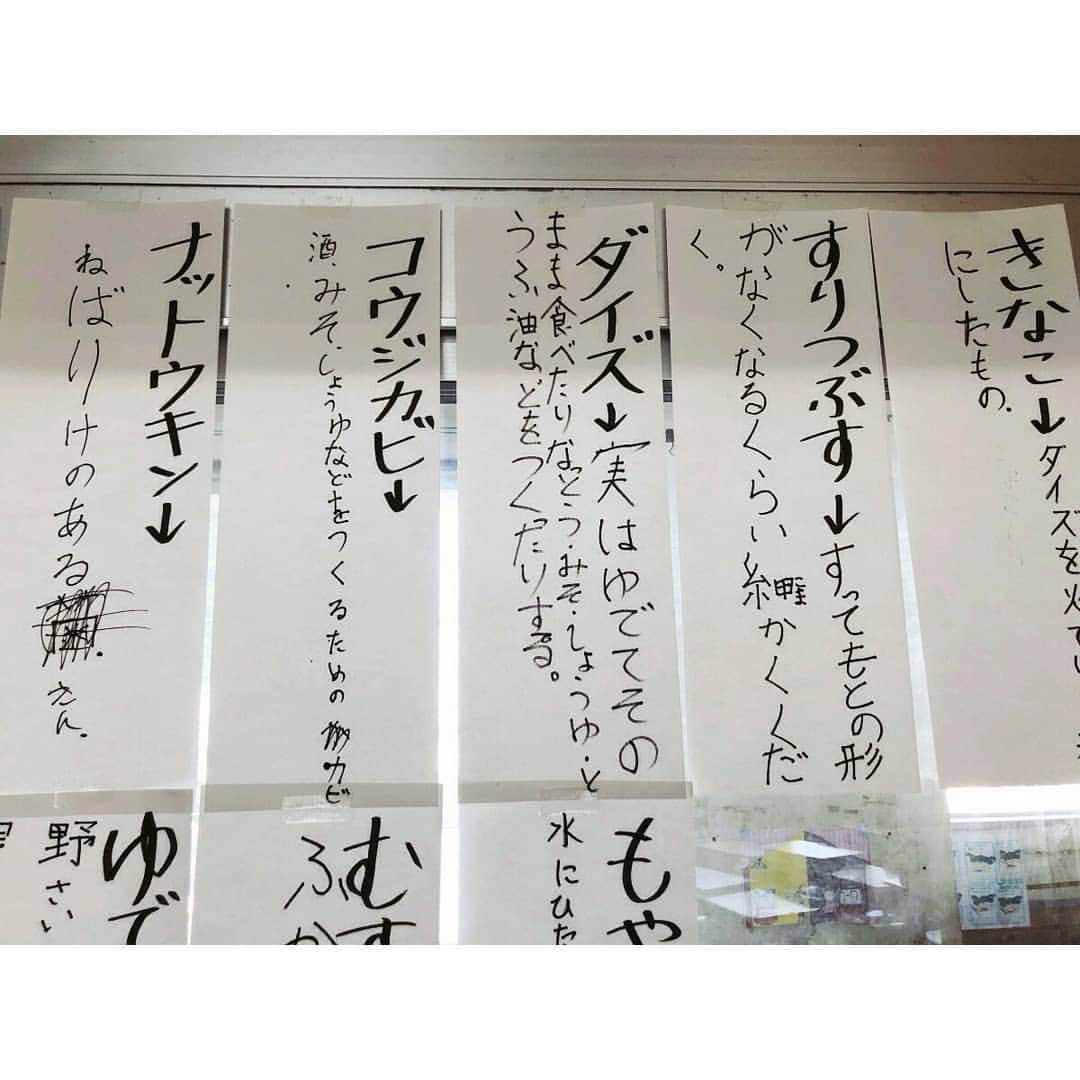 きなこ→タイズを
にしたもの.
すりつぶす→すってもとの形
がなくなるくらい細かくくだ
く。
ダイズ→実はゆでてその
まま食べたりなっとう・みそ・しょうゆ・と
うふ油などをつくったりする。
コウジカビ→
酒、みそ、しょうゆなどをつくるためのカビ
ナットウキン→
ねばりけのあるえん.
もや
水にひた
むす
ふか
ゆで
野さい